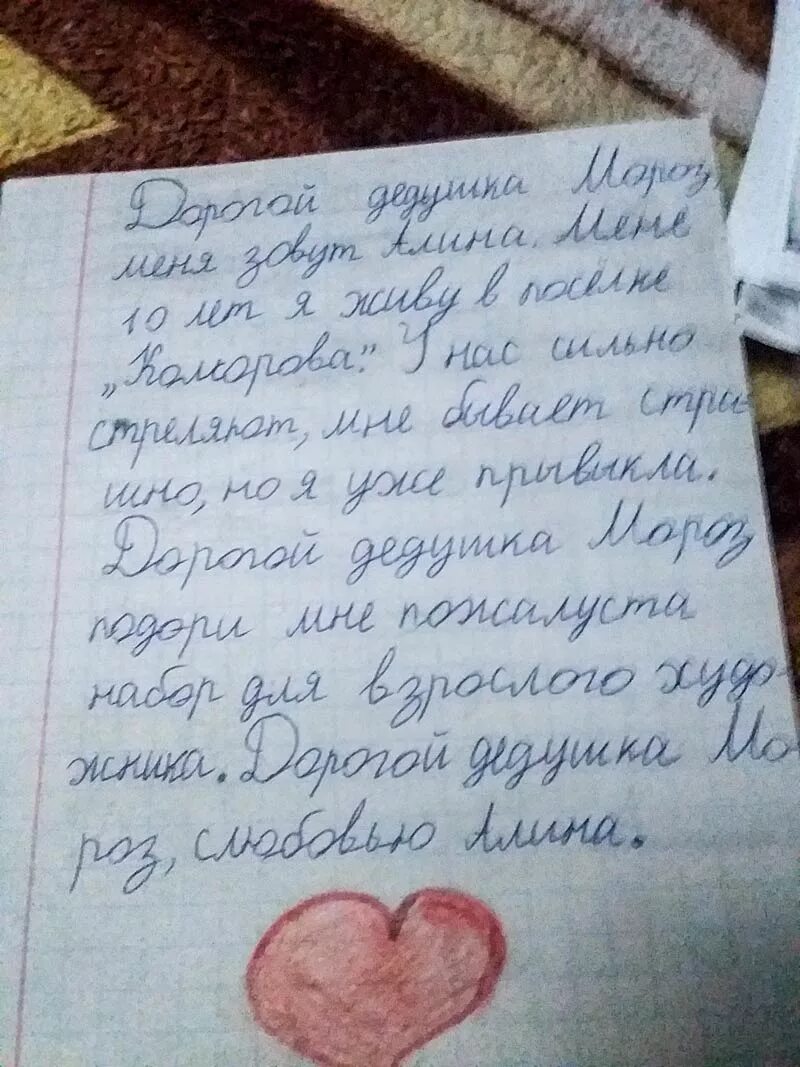 Дорогой дедушка Мороз,
меня зовут Алина. Мене
10 лет я живу в посёлке
„Комсорова". У нас сильно
стреляют, мне бывает стра-
шно, но я уже прывыкла.
Дорогой дедушка Мороз
подори мне пожалуста
набор для взрослого худо-
жника. Дорогой дедушка Мо-
роз, слюбовью Алина.